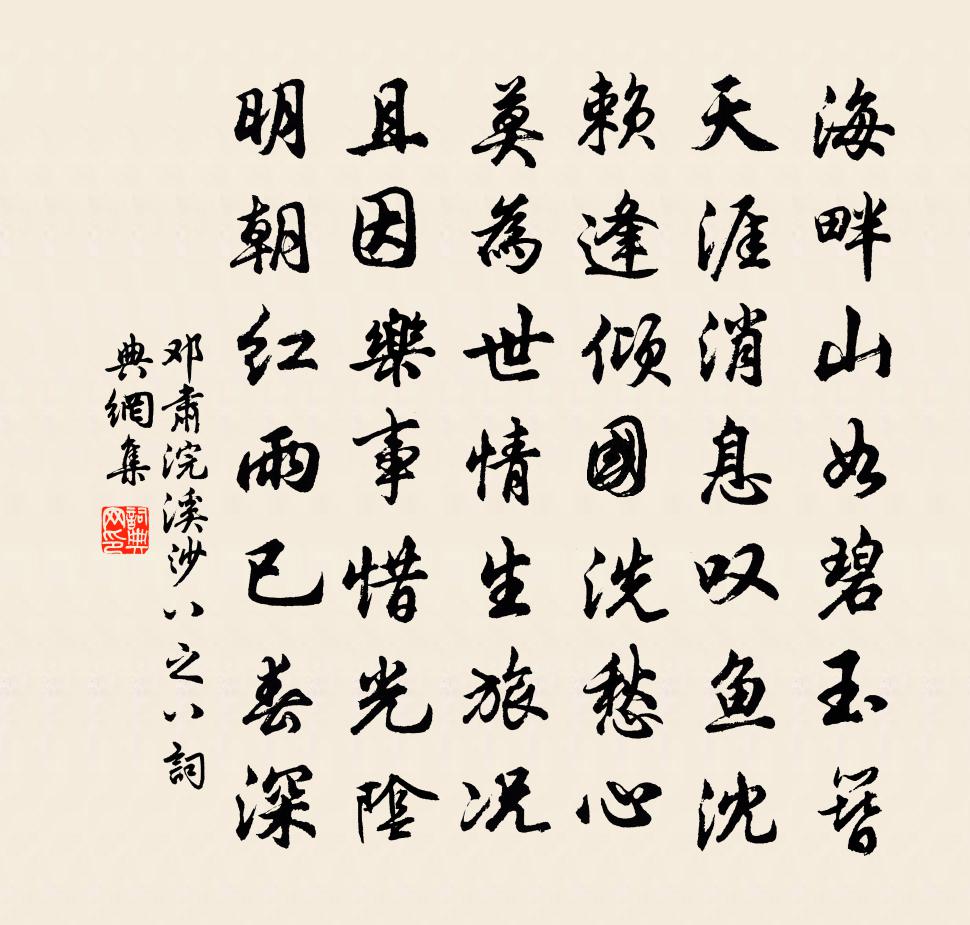 海畔山如碧玉簪
天涯消息叹鱼沈
赖逢倾國洗愁心
莫為世情生旅况
且因樂事惜光陰
明朝红雨已春深
邓肅浣溪沙八之八詞
典網集
詞典网印